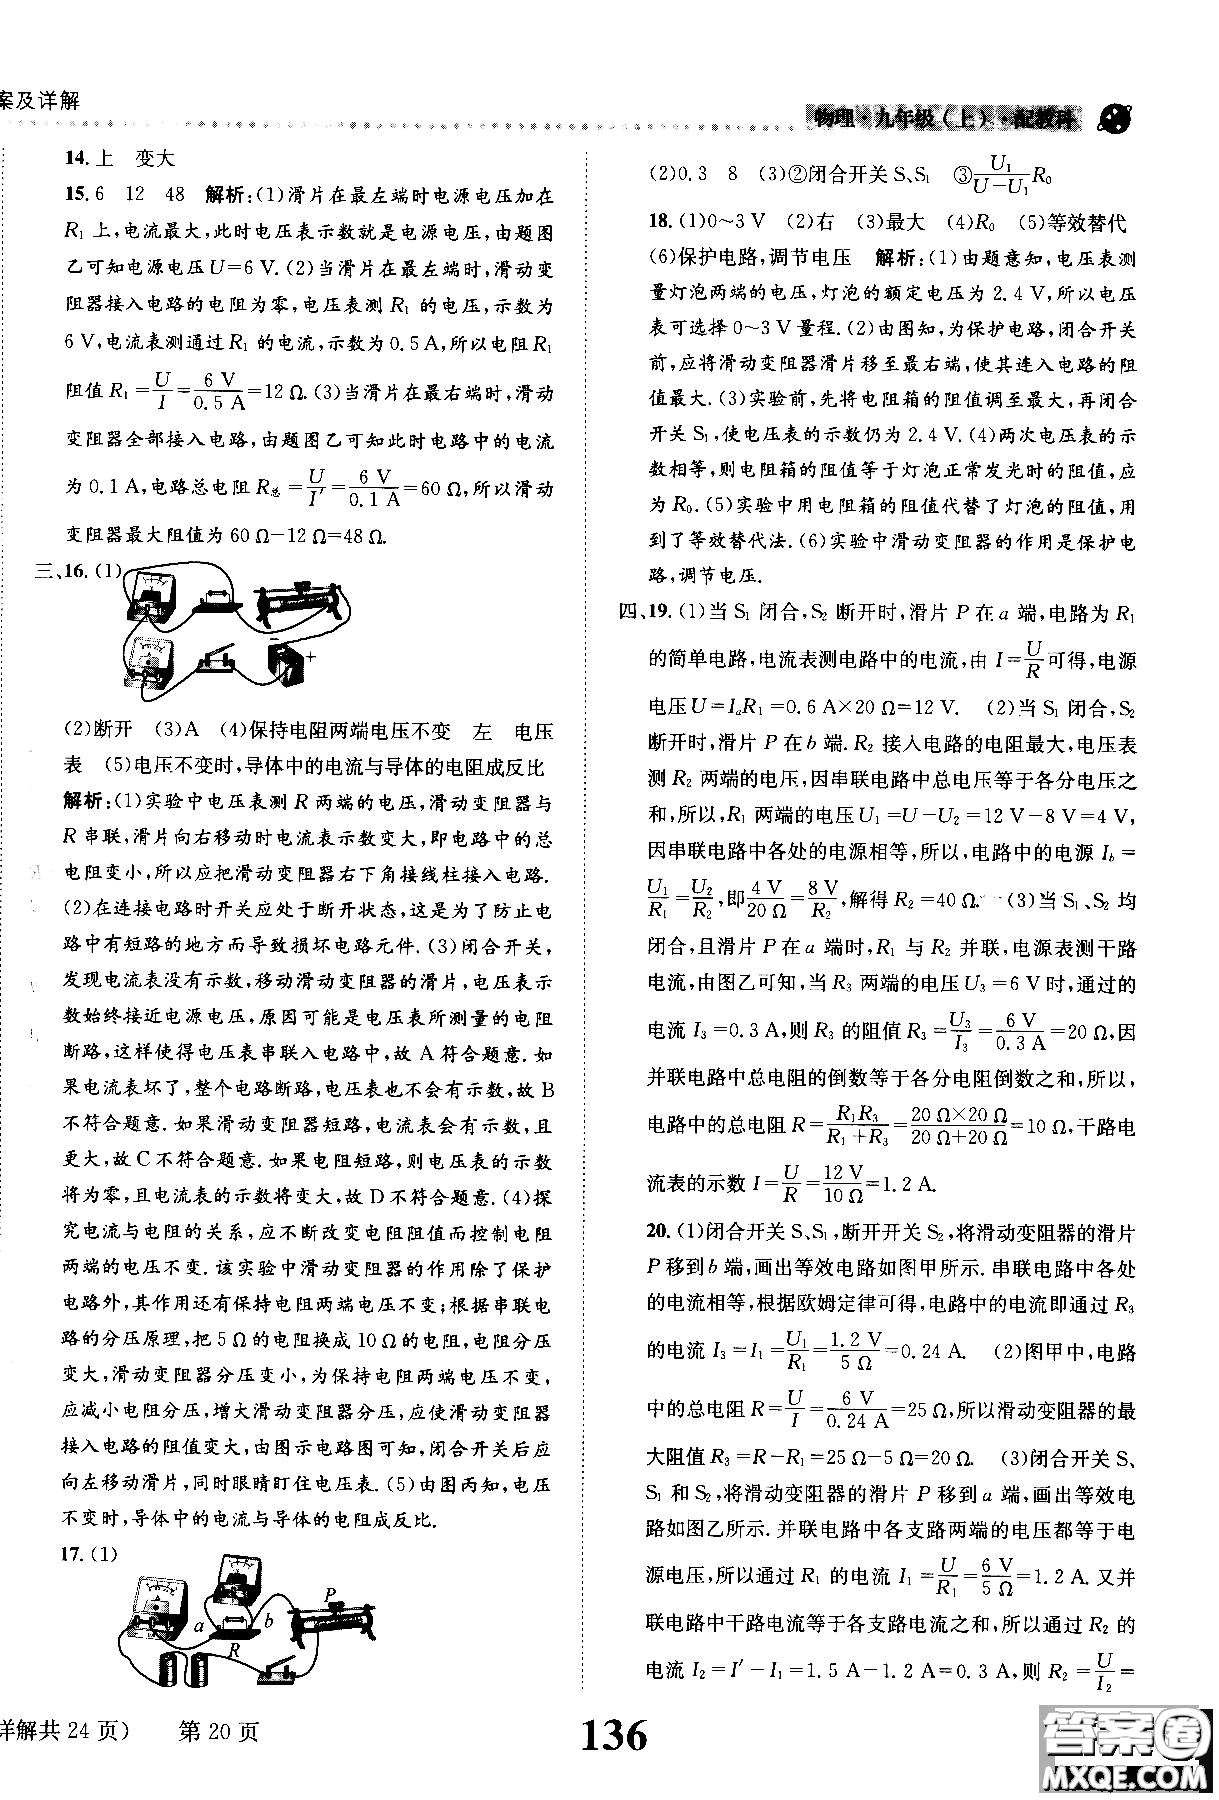 案及详解
物理·九年级(上)·配教科
14.上 变大
15.6 12 48 解析:(1)滑片在最左端时电源电压加在
R₁上,电流最大,此时电压表示数就是电源电压,由题图
乙可知电源电压U=6 V.(2)当滑片在最左端时,滑动变
阻器接入电路的电阻为零,电压表测 R₁ 的电压,示数为
6 V,电流表测通过R₁的电流,示数为0.5 A,所以电阻R₁
阻值 R₁=U/I=6 V/0.5 A=12 Ω.(3)当滑片在最右端时,滑动
变阻器全部接入电路,由题图乙可知此时电路中的电流
为0.1 A,电路总电阻R总=U/I′=6 V/0.1 A=60 Ω,所以滑动
变阻器最大阻值为 60 Ω-12 Ω=48 Ω.
三、16.(1)
- +
(2)断开 (3)A (4)保持电阻两端电压不变 左 电压
表 (5)电压不变时,导体中的电流与导体的电阻成反比
解析:(1)实验中电压表测 R 两端的电压,滑动变阻器与
R 串联,滑片向右移动时电流表示数变大,即电路中的总
电阻变小,所以应把滑动变阻器右下角接线柱接入电路.
(2)在连接电路时开关应处于断开状态,这是为了防止电
路中有短路的地方而导致损坏电路元件.(3)闭合开关,
发现电流表没有示数,移动滑动变阻器的滑片,电压表示
数始终接近电源电压,原因可能是电压表所测量的电阻
断路,这样使得电压表串联入电路中,故 A 符合题意.如
果电流表坏了,整个电路断路,电压表也不会有示数,故 B
不符合题意.如果滑动变阻器短路,电流表会有示数,且
更大,故 C 不符合题意.如果电阻短路,则电压表的示数
将为零,且电流表的示数将变大,故 D 不符合题意.(4)探
究电流与电阻的关系,应不断改变电阻阻值而控制电阻
两端的电压不变.该实验中滑动变阻器的作用除了保护
电路外,其作用还有保持电阻两端电压不变;根据串联电
路的分压原理,把 5 Ω的电阻换成 10 Ω的电阻,电阻分压
变大,滑动变阻器分压变小,为保持电阻两端电压不变,
应减小电阻分压,增大滑动变阻器分压,应使滑动变阻器
接入电路的阻值变大,由图示电路图可知,闭合开关后应
向左移动滑片,同时眼睛盯住电压表.(5)由图丙知,电压
不变时,导体中的电流与导体的电阻成反比.
17.(1)
P
a b
R
(2)0.3 8 (3)②闭合开关 S、S₁ ③U₁/(U-U₁)R₀
18.(1)0~3 V (2)右 (3)最大 (4)R₀ (5)等效替代
(6)保护电路,调节电压 解析:(1)由题意知,电压表测
量灯泡两端的电压,灯泡的额定电压为 2.4 V,所以电压
表可选择 0~3 V 量程.(2)由图知,为保护电路,闭合开关
前,应将滑动变阻器滑片移至最右端,使其连入电路的阻
值最大.(3)实验前,先将电阻箱的阻值调至最大,再闭合
开关 S₁,使电压表的示数仍为 2.4 V.(4)两次电压表的示
数相等,则电阻箱的阻值等于灯泡正常发光时的阻值,应
为 R₀.(5)实验中用电阻箱的阻值代替了灯泡的阻值,用
到了等效替代法.(6)实验中滑动变阻器的作用是保护电
路,调节电压.
四、19.(1)当 S₁ 闭合,S₂ 断开时,滑片 P 在 a 端,电路为 R₁
的简单电路,电流表测电路中的电流,由 I=U/R可得,电源
电压U=IₐR₁=0.6 A×20 Ω=12 V. (2)当 S₁ 闭合,S₂
断开时,滑片 P 在 b 端.R₂ 接入电路的电阻最大,电压表
测 R₂ 两端的电压,因串联电路中总电压等于各分电压之
和,所以,R₁ 两端的电压U₁=U-U₂=12 V-8 V=4 V,
因串联电路中各处的电源相等,所以,电路中的电源 I_b=
U₁/R₁=U₂/R₂,即4 V/20 Ω=8 V/R₂,解得 R₂=40 Ω. (3)当 S₁、S₂ 均
闭合,且滑片 P 在 a 端时,R₁ 与 R₂ 并联,电源表测干路
电流,由图乙可知,当 R₃ 两端的电压U₃=6 V 时,通过的
电流 I₃=0.3 A,则 R₃ 的阻值 R₃=U₃/I₃=6 V/0.3 A=20 Ω,因
并联电路中总电阻的倒数等于各分电阻倒数之和,所以,
电路中的总电阻 R=R₁R₃/(R₁+R₃)=20 Ω×20 Ω/(20 Ω+20 Ω)=10 Ω,干路电
流表的示数 I=U/R=12 V/10 Ω=1.2 A.
20.(1)闭合开关 S、S₁,断开开关 S₂,将滑动变阻器的滑片
P 移到 b 端,画出等效电路如图甲所示.串联电路中各处
的电流相等,根据欧姆定律可得,电路中的电流即通过 R₃
的电流 I₃=I₁=U₁/R₁=1.2 V/5 Ω=0.24 A. (2)图甲中,电路
中的总电阻 R=U/I=6 V/0.24 A=25 Ω,所以滑动变阻器的最
大阻值 R₃=R-R₁=25 Ω-5 Ω=20 Ω. (3)闭合开关 S、
S₁ 和 S₂,将滑动变阻器的滑片 P 移到 a 端,画出等效电
路如图乙所示.并联电路中各支路两端的电压都等于电
源电压,所以通过 R₁ 的电流 I₁=U/R₁=6 V/5 Ω=1.2 A.又并
联电路中干路电流等于各支路电流之和,所以通过 R₂ 的
电流 I₂=I′-I₁=1.5 A-1.2 A=0.3 A,则 R₂=U/I₂=
详解共 24 页) 第 20 页
136
答案圈
MXQE.COM